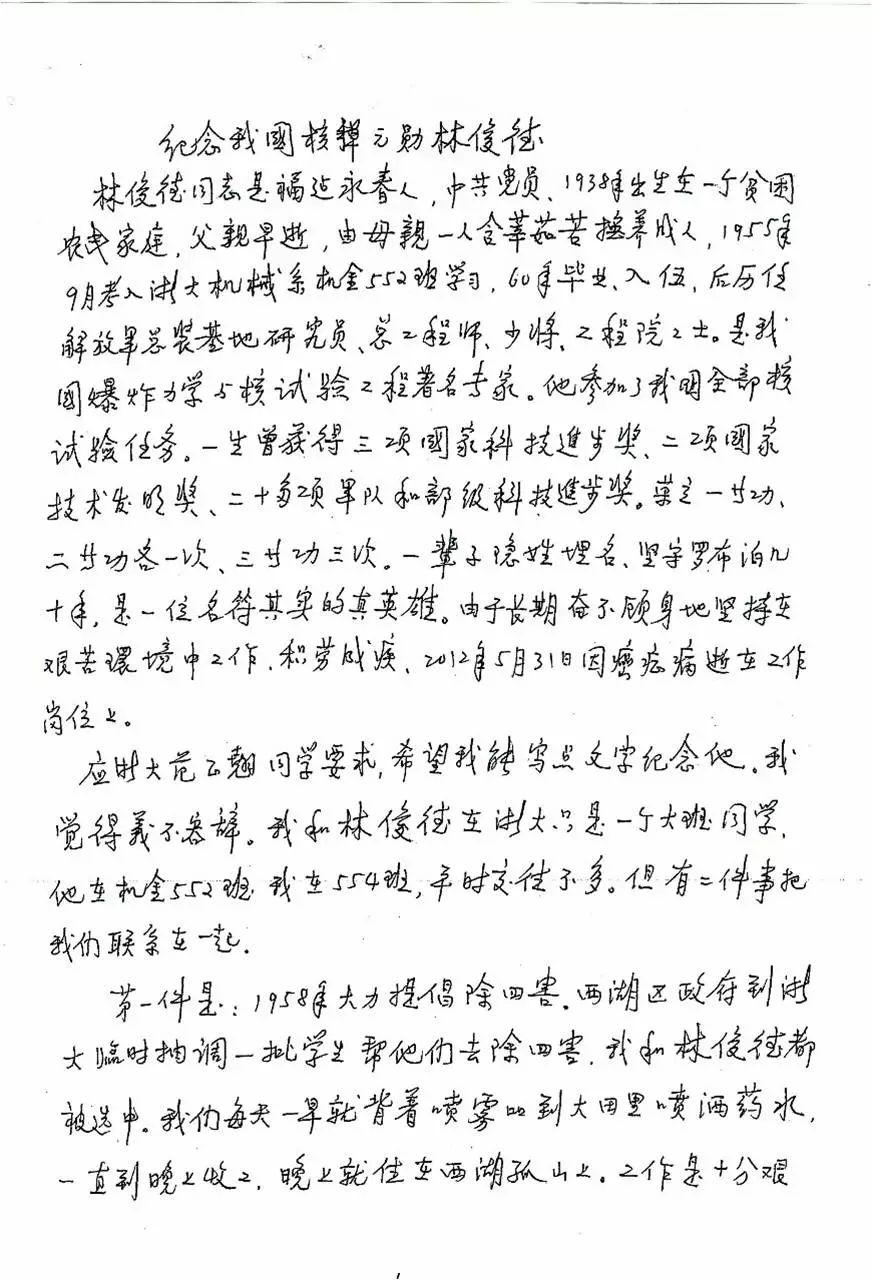 纪念我國核弹元勋林俊德
林俊德同志是福建永春人，中共党员、1938年出生在一个贫困
农民家庭，父親早逝，由母親一人含莘茹苦撫养成人，1955年
9月考入浙大机械系机金552班学习，60年毕业、入伍，后历任
解放軍总装基地研究员、总工程师、少将、工程院士。是我
國爆炸力学与核试验工程著名专家。他参加了我国全部核
试验任务。一生曾获得三项國家科技進步奖、二项國家
技术发明奖、二十多项軍队和部级科技進步奖。荣立一等功、
二等功各一次、三等功三次。一辈子隐姓埋名、坚守罗布泊几
十年，是一位名符其实的真英雄。由于长期奋不顾身地坚持在
艰苦環境中工作，积劳成疾、2012年5月31日因癌症病逝在工作
岗位上。
应浙大范云翘同学要求，希望我能写点文字纪念他。我
觉得義不容辞。我和林俊德在浙大只是一个大班同学，
他在机金552班我在554班，平时交往不多。但有二件事把
我们联系在一起.
第一件是：1958年大力提倡除四害.西湖区政府到浙
大临时抽调一批学生帮他们去除四害，我和林俊德都
被选中。我们每天一早就背着喷雾器到大田里喷洒药水，
一直到晚上收工，晚上就住在西湖孤山上。工作是十分艰